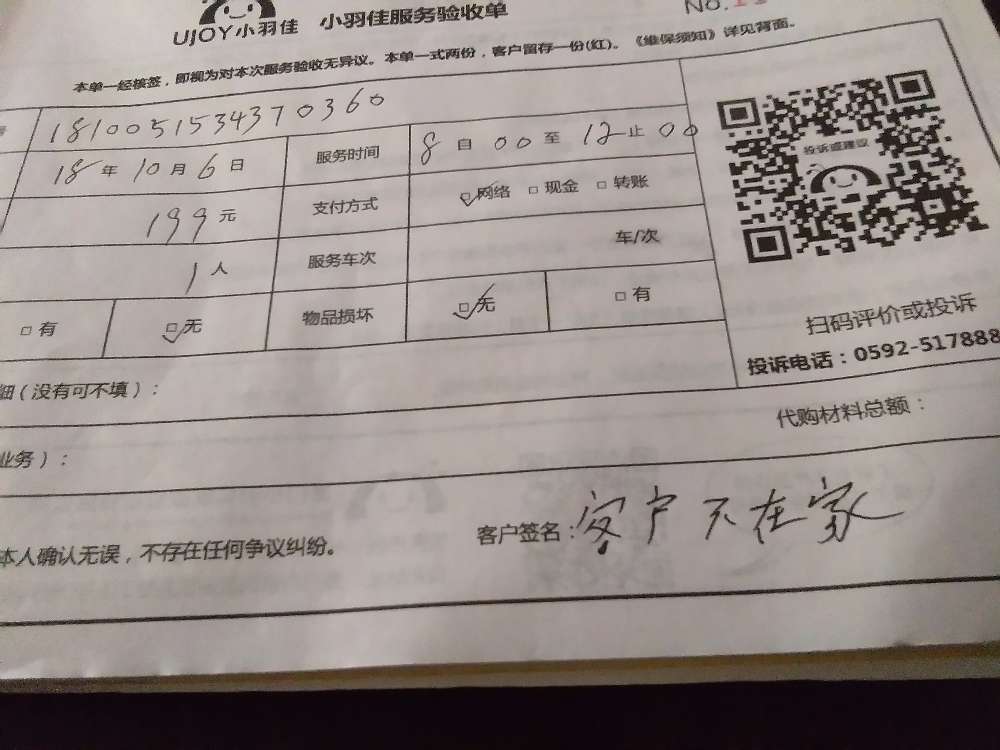 UJOY小羽佳 小羽佳服务验收单 No.
本单一经核签，即视为对本次服务验收无异议。本单一式两份，客户留存一份(红)。《维保须知》详见背面。
1810051534370360
18年10月6日 服务时间 8自00至12止00
199元 支付方式 ☑网络 □现金 □转账
1人 服务车次 车/次
□有 ☑无 物品损坏 ☑无 □有
投诉或建议
扫码评价或投诉
投诉电话：0592-517888
细（没有可不填）：
代购材料总额：
业务）：
本人确认无误，不存在任何争议纠纷。 客户签名：客户不在家